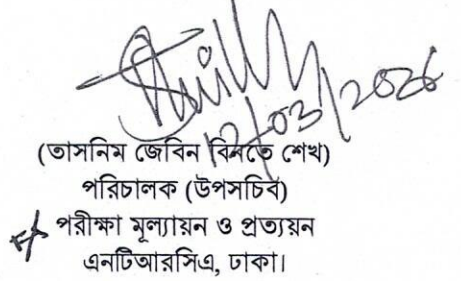 12/03/2026
(তাসনিম জেবিন বিনতে শেখ)
পরিচালক (উপসচিব)
পরীক্ষা মূল্যায়ন ও প্রত্যয়ন
এনটিআরসিএ, ঢাকা।